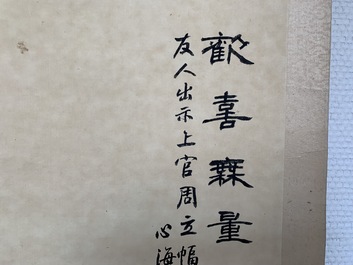 歡喜無量
友人出示上官周立幅
心海